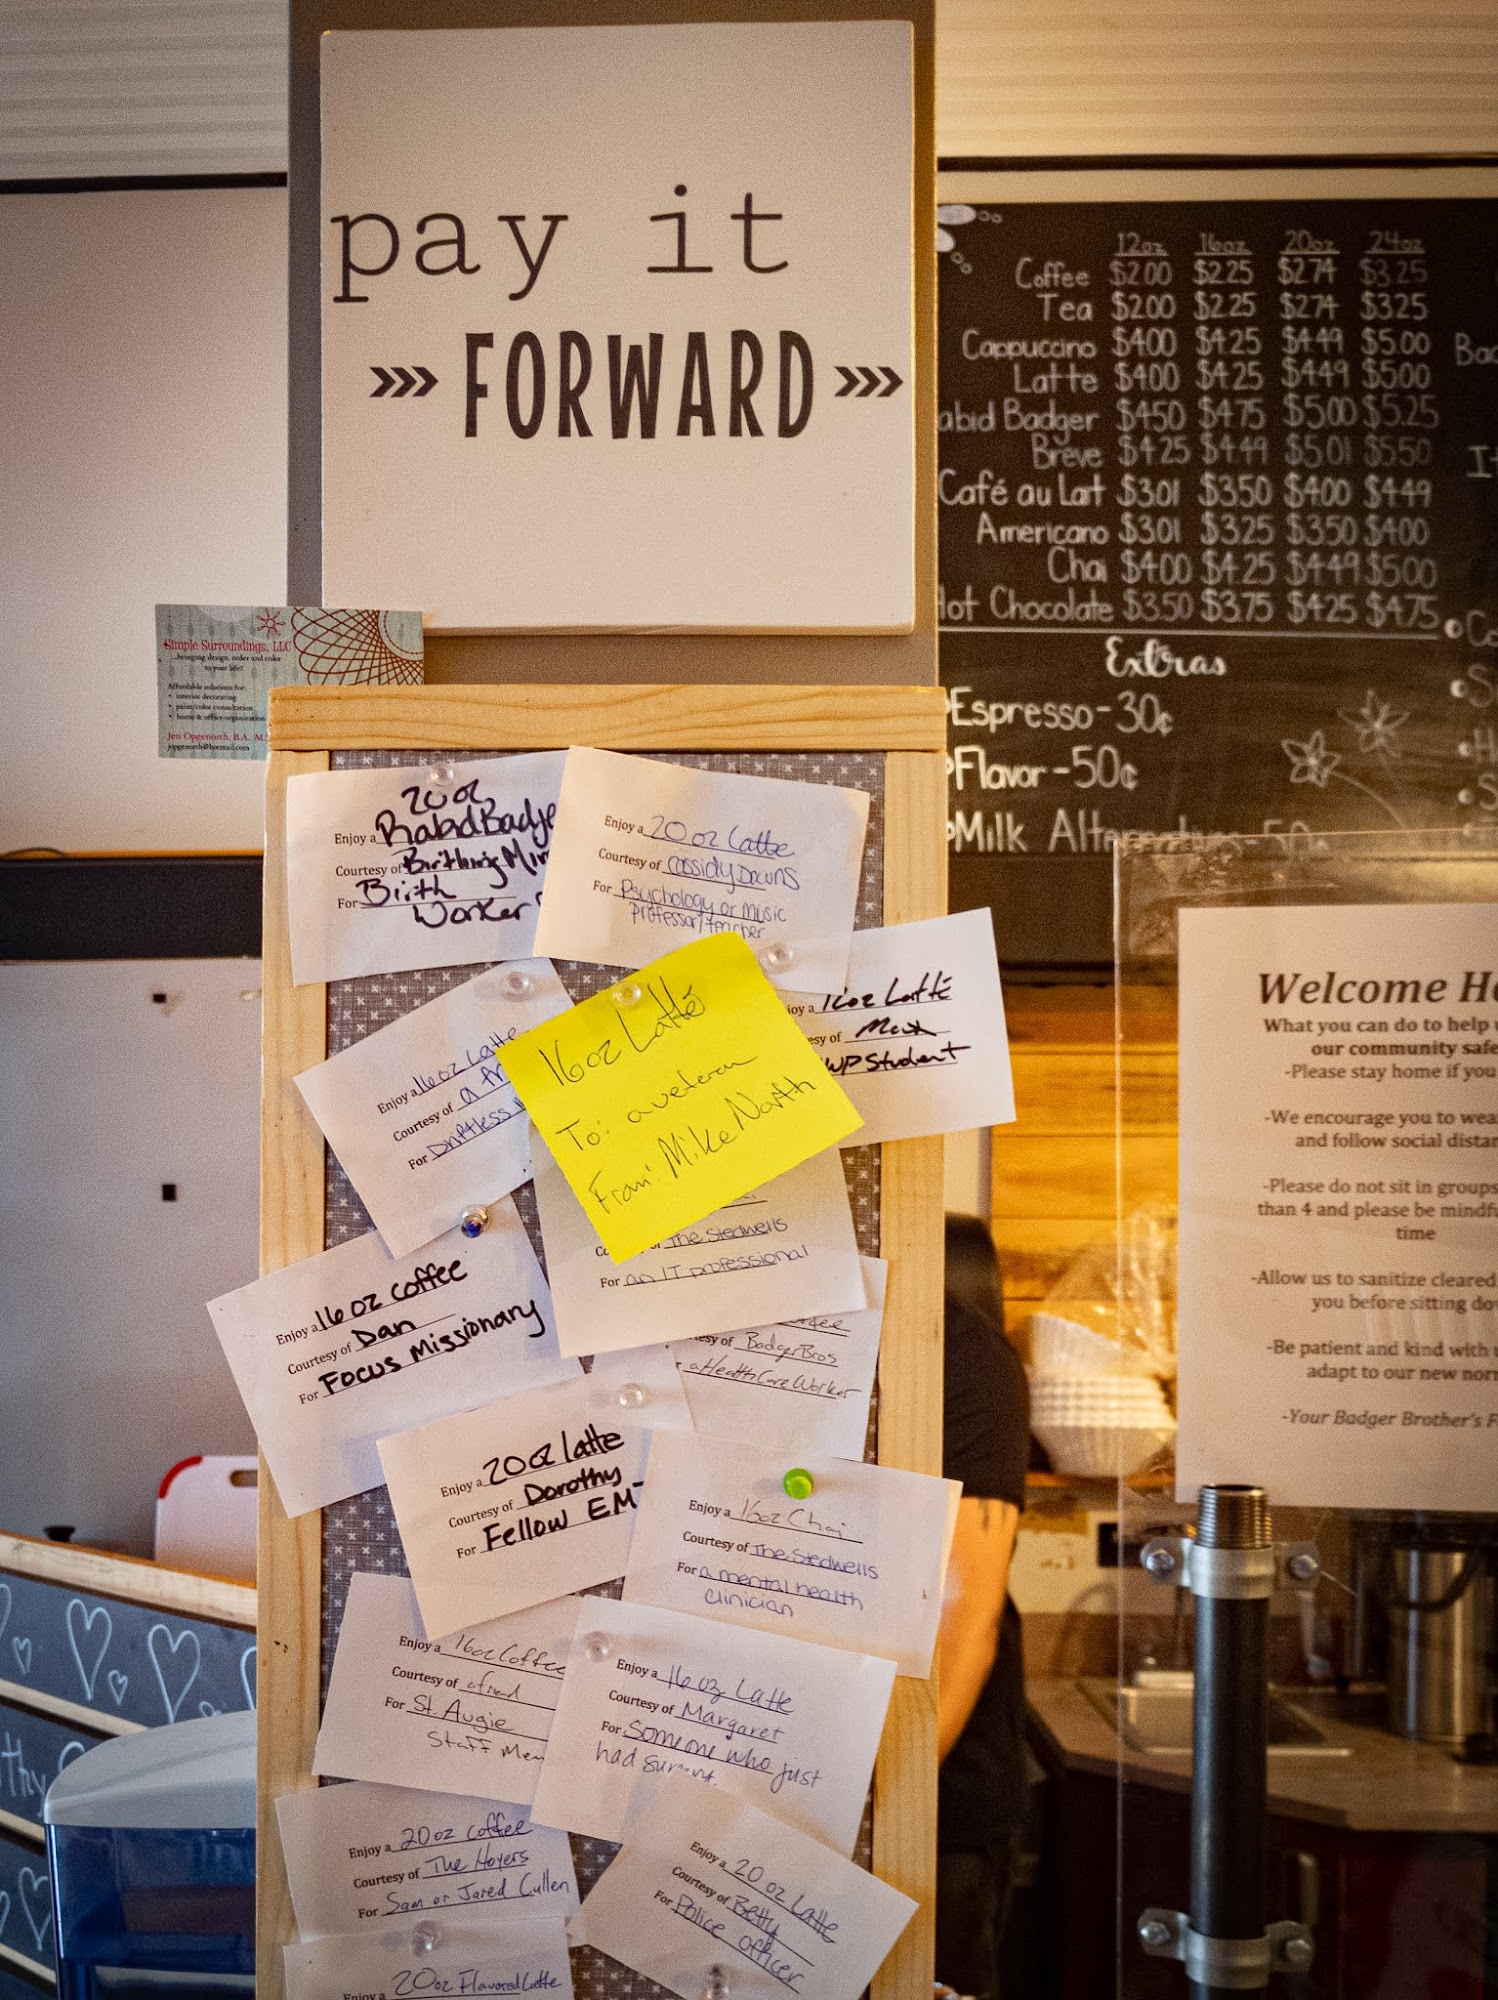 pay it
»» FORWARD »»
12oz 16oz 20oz 24oz
Coffee $2.00 $2.25 $2.74 $3.25
Tea $2.00 $2.25 $2.74 $3.25
Cappuccino $4.00 $4.25 $4.49 $5.00
Latte $4.00 $4.25 $4.49 $5.00
abid Badger $4.50 $4.75 $5.00 $5.25
Breve $4.25 $4.49 $5.01 $5.50
Café au Lait $3.01 $3.50 $4.00 $4.49
Americano $3.01 $3.25 $3.50 $4.00
Chai $4.00 $4.25 $4.49 $5.00
Hot Chocolate $3.50 $3.75 $4.25 $4.75
Extras
Espresso - 30¢
Flavor - 50¢
Milk Alternatives - 50
Simple Surroundings, LLC
...bringing design, order and color
to your life!
Affordable solutions for:
• interior decorating
• paint/color consultation
• home & office organization
Jen Opgenorth, B.A., M.
jopgenorth@hotmail.com
20oz
Enjoy a Rabid Badge
Courtesy of Birthing Min
For Birth
Worker
Enjoy a 20 oz Latte
Courtesy of Cassidy Downs
For Psychology or Music
professor/teacher
Enjoy a 16oz Latte
Courtesy of a fr
For Driftless
16oz Latté
To: a veteran
From: Mike North
joy a 16oz Latté
esy of Max
WP Student
The Stedwells
For an IT professional
Enjoy a 16oz coffee
Courtesy of Dan
For Focus Missionary
esy of Badger Bros
a Health Care Worker
Enjoy a 20oz latte
Courtesy of Dorothy
For Fellow EMT
Enjoy a 16oz Chai
Courtesy of The Stedwells
For a mental health
clinician
Enjoy a 16oz Coffee
Courtesy of a friend
For St. Augie
Staff Mem
Enjoy a 16 oz Latte
Courtesy of Margaret
For Someone who just
had surgery.
Enjoy a 20oz coffee
Courtesy of The Hoyers
For Sam or Jared Cullen
Enjoy a 20 oz Latte
Courtesy of Betty
For Police officer
Enjoy a 20oz Flavored Latte
Welcome Ho
What you can do to help
our community safe
-Please stay home if you
-We encourage you to wea
and follow social distan
-Please do not sit in groups
than 4 and please be mindfu
time
-Allow us to sanitize cleared
you before sitting do
-Be patient and kind with u
adapt to our new norm
-Your Badger Brother's F